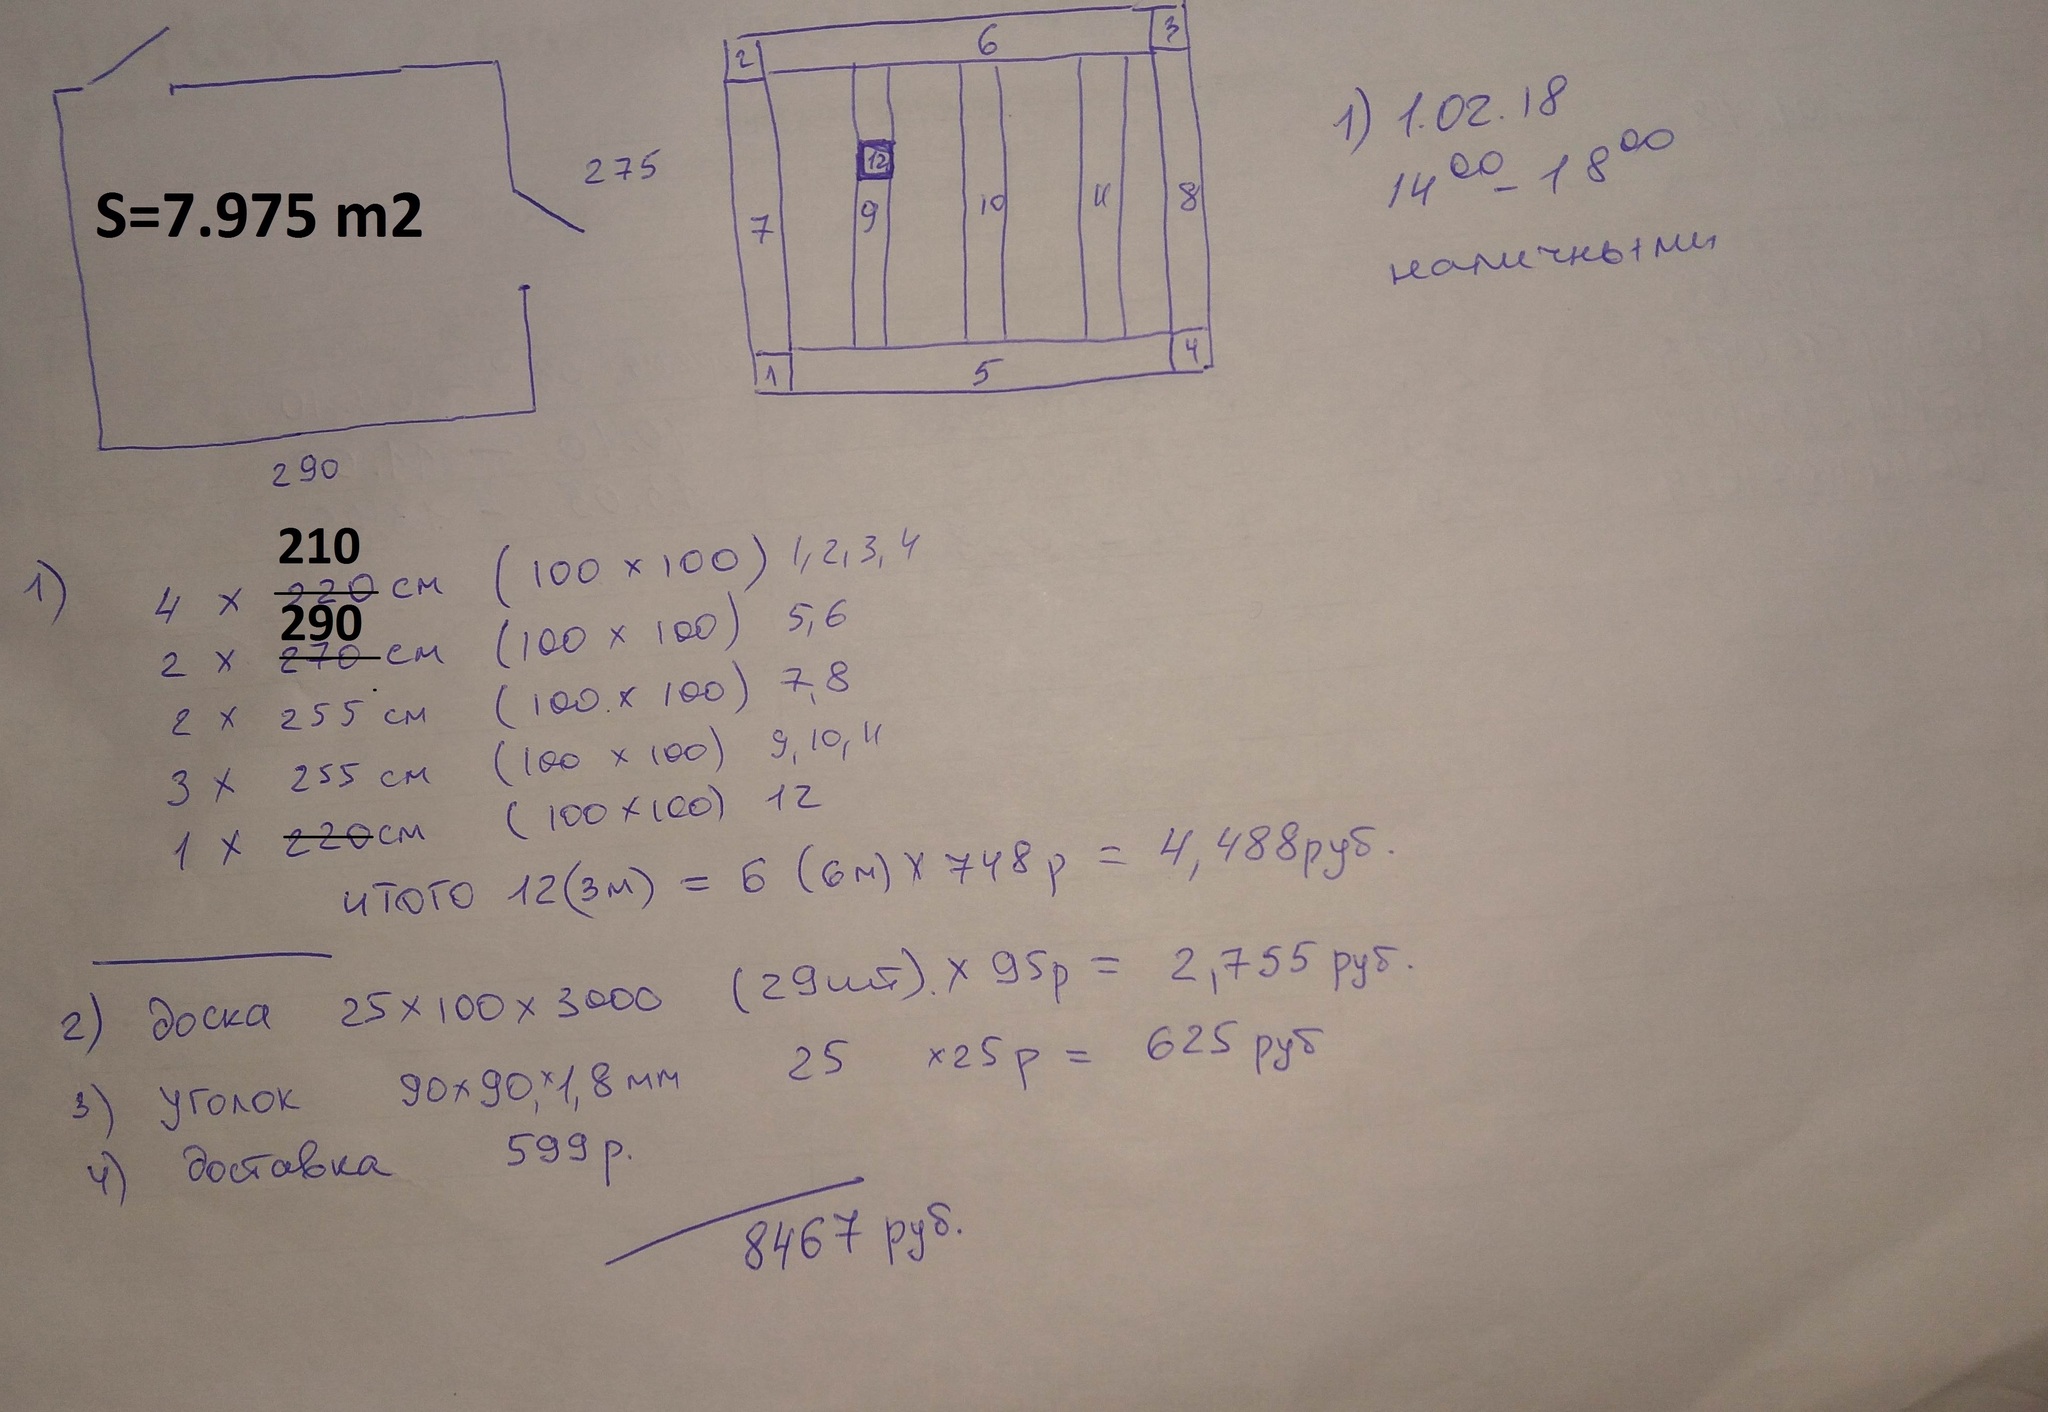 S=7.975 m2
275
290
2
6
3
12
7
9
10
11
8
1
5
4
1) 1.02.18
14⁰⁰ - 18⁰⁰
наличными
210
1) 4 x 220 см (100 x 100) 1, 2, 3, 4
290
2 x 270 см (100 x 100) 5, 6
2 x 255 см (100 x 100) 7, 8
3 x 255 см (100 x 100) 9, 10, 11
1 x 220 см (100 x 100) 12
итого 12(3м) = 6 (6м) x 748р = 4,488руб.
2) доска 25x100x3000 (29шт). x 95р = 2,755 руб.
3) уголок 90x90,x1,8мм 25 x25р = 625 руб
4) доставка 599р.
8467 руб.